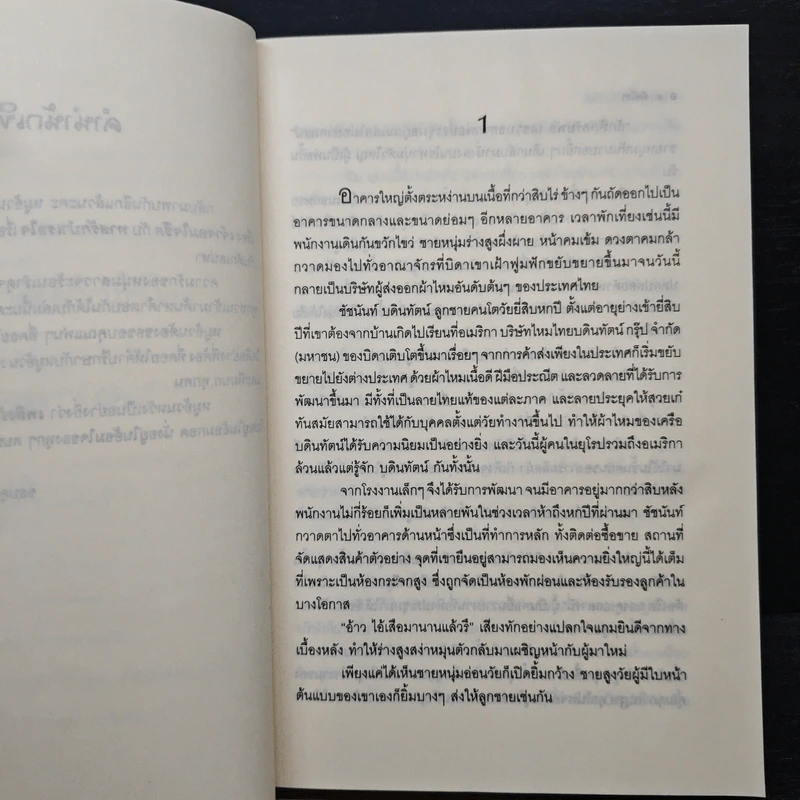 1
อาคารใหญ่ตั้งตระหง่านบนเนื้อที่กว่าสิบไร่ ข้างๆ กันถัดออกไปเป็น
อาคารขนาดกลางและขนาดย่อมๆ อีกหลายอาคาร เวลาพักเที่ยงเช่นนี้มี
พนักงานเดินกันขวักไขว่ ชายหนุ่มร่างสูงผึ่งผาย หน้าคมเข้ม ดวงตาคมกล้า
กวาดมองไปทั่วอาณาจักรที่บิดาเขาเฝ้าฟูมฟักขยับขยายขึ้นมาจนวันนี้
กลายเป็นบริษัทผู้ส่งออกผ้าไหมอันดับต้นๆ ของประเทศไทย
ชัชนันท์ บดินทัตน์ ลูกชายคนโตวัยยี่สิบหกปี ตั้งแต่อายุย่างเข้ายี่สิบ
ปีที่เขาต้องจากบ้านเกิดไปเรียนที่อเมริกา บริษัทไหมไทยบดินทัตน์ กรุ๊ป จำกัด
(มหาชน) ของบิดาเติบโตขึ้นมาเรื่อยๆ จากการค้าส่งเพียงในประเทศก็เริ่มขยับ
ขยายไปยังต่างประเทศ ด้วยผ้าไหมเนื้อดี ฝีมือประณีต และลวดลายที่ได้รับการ
พัฒนาขึ้นมา มีทั้งที่เป็นลายไทยแท้ของแต่ละภาค และลายประยุคให้สวยเก๋
ทันสมัยสามารถใช้ได้กับบุคคลตั้งแต่วัยทำงานขึ้นไป ทำให้ผ้าไหมของเครือ
บดินทัตน์ได้รับความนิยมเป็นอย่างยิ่ง และวันนี้ผู้คนในยุโรปรวมถึงอเมริกา
ล้วนแล้วแต่รู้จัก บดินทัตน์ กันทั้งนั้น
จากโรงงานเล็กๆ จึงได้รับการพัฒนา จนมีอาคารอยู่มากกว่าสิบหลัง
พนักงานไม่กี่ร้อยก็เพิ่มเป็นหลายพันในช่วงเวลาห้าถึงหกปีที่ผ่านมา ชัชนันท์
กวาดตาไปทั่วอาคารด้านหน้าซึ่งเป็นที่ทำการหลัก ทั้งติดต่อซื้อขาย สถานที่
จัดแสดงสินค้าตัวอย่าง จุดที่เขายืนอยู่สามารถมองเห็นความยิ่งใหญ่นี้ได้เต็ม
ที่เพราะเป็นห้องกระจกสูง ซึ่งถูกจัดเป็นห้องพักผ่อนและห้องรับรองลูกค้าใน
บางโอกาส
"อ้าว ไอ้เสือมานานแล้วรึ" เสียงทักอย่างแปลกใจแกมยินดีจากทาง
เบื้องหลัง ทำให้ร่างสูงสง่าหมุนตัวกลับมาเผชิญหน้ากับผู้มาใหม่
เพียงแค่ได้เห็นชายหนุ่มอ่อนวัยก็เปิดยิ้มกว้าง ชายสูงวัยผู้มีใบหน้า
ต้นแบบของเขาเองก็ยิ้มบางๆ ส่งให้ลูกชายเช่นกัน